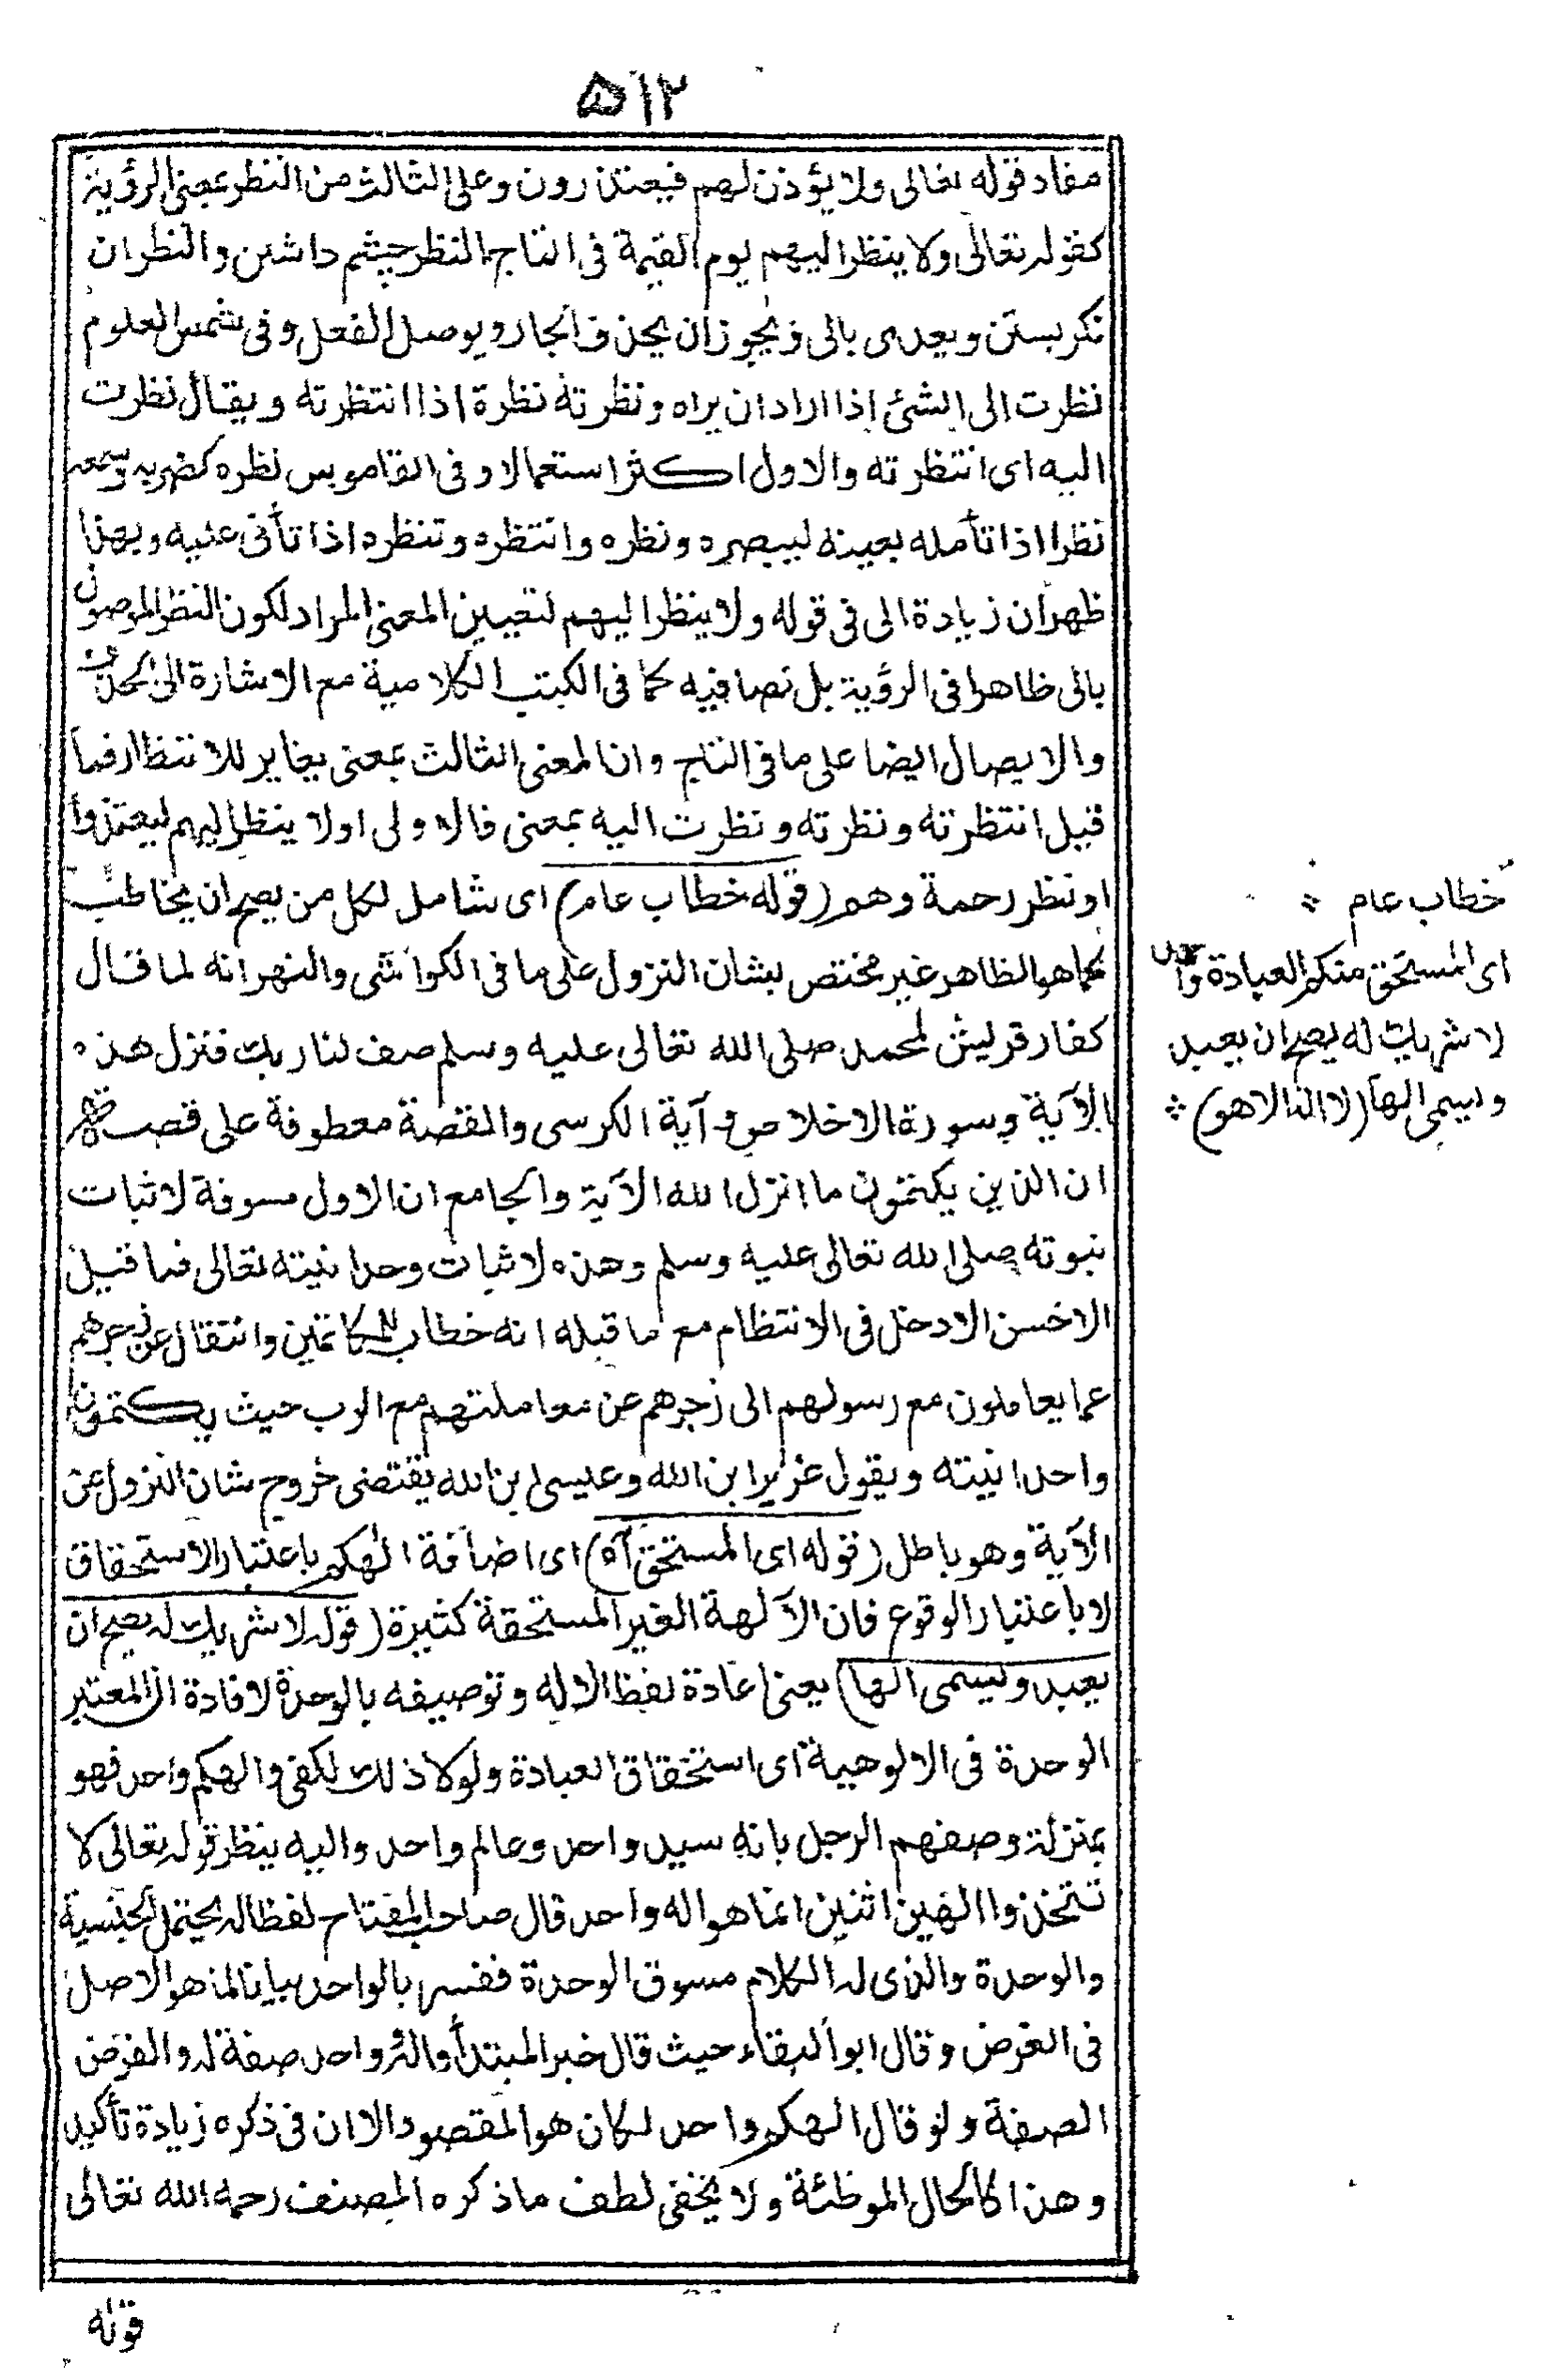 ٥١٢
مفاد قوله تعالى ولا يؤذن لهم فيعتذرون وعلى الثالث من النظر بمعنى الرؤية
كقوله تعالى ولا ينظر اليهم يوم القيمة فى التاج النظر چشم داشتن و النظران
نكريستن ويعدى بالى و يجوز ان يحذف الجار ويوصل الفعل و فى شمس العلوم
نظرت الى الشئ اذا اراد ان يراه ونظرته نظرة اذا انتظرته ويقال نظرت
اليه اى انتظرته والاول اكثر استعمالا و فى القاموس نظره كضربه وسمعه
نظرا اذا تأمله بعينه ليبصره ونظره وانتظره وتنظره اذا تأنى عليه وبهذا
ظهر ان زيادة الى فى قوله ولا ينظر اليهم لتعيين المعنى المراد لكون النظر الموصول
بالى ظاهرا فى الرؤية بل نصا فيه كما فى الكتب الكلامية مع الاشارة الى الحذف
والايصال ايضا على ما فى التاج وان المعنى الثالث بمعنى يغاير للانتظار فما
قيل انتظرته ونظرته ونظرت اليه بمعنى فالاولى اولا ينظر اليهم ليعتذروا
او نظر رحمة وهم (قوله خطاب عام) اى شامل لكل من يصح ان يخاطب
كما هو الظاهر غير مختص بشان النزول على ما فى الكواشى والنهر انه لما قال
كفار قريش لمحمد صلى الله تعالى عليه وسلم صف لنا ربك فنزل هذه
الآية وسورة الاخلاص و آية الكرسى والقصة معطوفة على قصة
ان الذين يكتمون ما انزل الله الآية والجامع ان الاول مسوقة لاثبات
نبوته صلى الله تعالى عليه وسلم وهذه لاثبات وحدانيته تعالى فما قيل
الاحسن الادخل فى الانتظام مع ما قبله انه خطاب للكاتمين وانتقال عن زجرهم
عما يعاملون مع رسولهم الى زجرهم عن معاملتهم مع الرب حيث يكتمون
واحدانيته ويقول عزيرا بن الله وعيسى ابن الله يقتضى خروج شان النزول عن
الآية وهو باطل (قوله اى المستحق آه) اى اضافة الهكم باعتبار الاستحقاق
لا باعتبار الوقوع فان الآلهة الغير المستحقة كثيرة (قوله لا شريك له يصح ان
يعبد ويسمى الها) يعنى اعادة لفظ الاله وتوصيفه بالوحدة لافادة ان المعتبر
الوحدة فى الالوهية اى استحقاق العبادة ولولا ذلك لكفى والهكم واحد فهو
بمنزلة وصفهم الرجل بانه سيد واحد وعالم واحد واليه ينظر قوله تعالى لا
تتخذوا الهين اثنين انما هو اله واحد قال صاحب المفتاح لفظ اله يحتمل الجنسية
والوحدة والذى له الكلام مسوق الوحدة ففسر بالواحد بيانا لما هو الاصل
فى الغرض وقال ابو البقاء حيث قال خبر المبتدأ واله واحد صفة له والغرض
الصفة ولو قال الهكم واحد لكان هو المقصود الا ان فى ذكره زيادة تأكيد
وهذا كالحال الموطئة ولا يخفى لطف ما ذكره المصنف رحمه الله تعالى
قوله
خطاب عام ∴
اى المستحق منكم العبادة واحد
لا شريك له يصح ان يعبد
ويسمى الها (لا اله الا هو) ∴